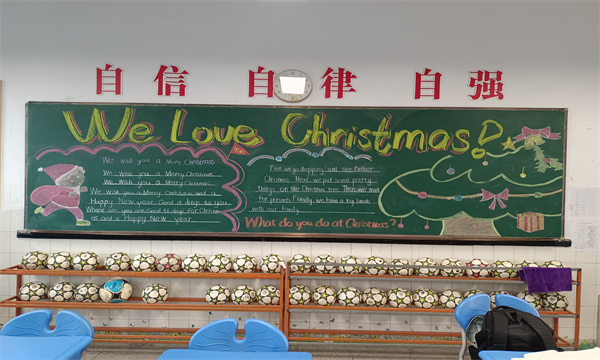 自信 自律 自强
We Love Christmas!
We wish you a Merry Christmas
We wish you a Merry Christmas
We wish you a Merry Christmas
We wish you a Merry Christmas and a
Happy New year. Good tidings to you
Where you are Good tidings for Christm
as and a Happy New year.
First we go shopping and see Father
Christmas. Next we put some pretty
things on the Christmas tree. Then we
for presents. Finally, we have a big lunch
with our family
What do you do at Christmas?